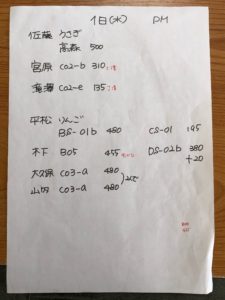 1日(水) PM
佐藤 うさぎ
高森 500
宮原 CO2-b 310
CO2-e 135
平松 りんご
BS-01b 480 CS-01 195
木下 B05 455 DS-02b 380
+20
大久保 CO3-a 480
山内 CO3-a 480